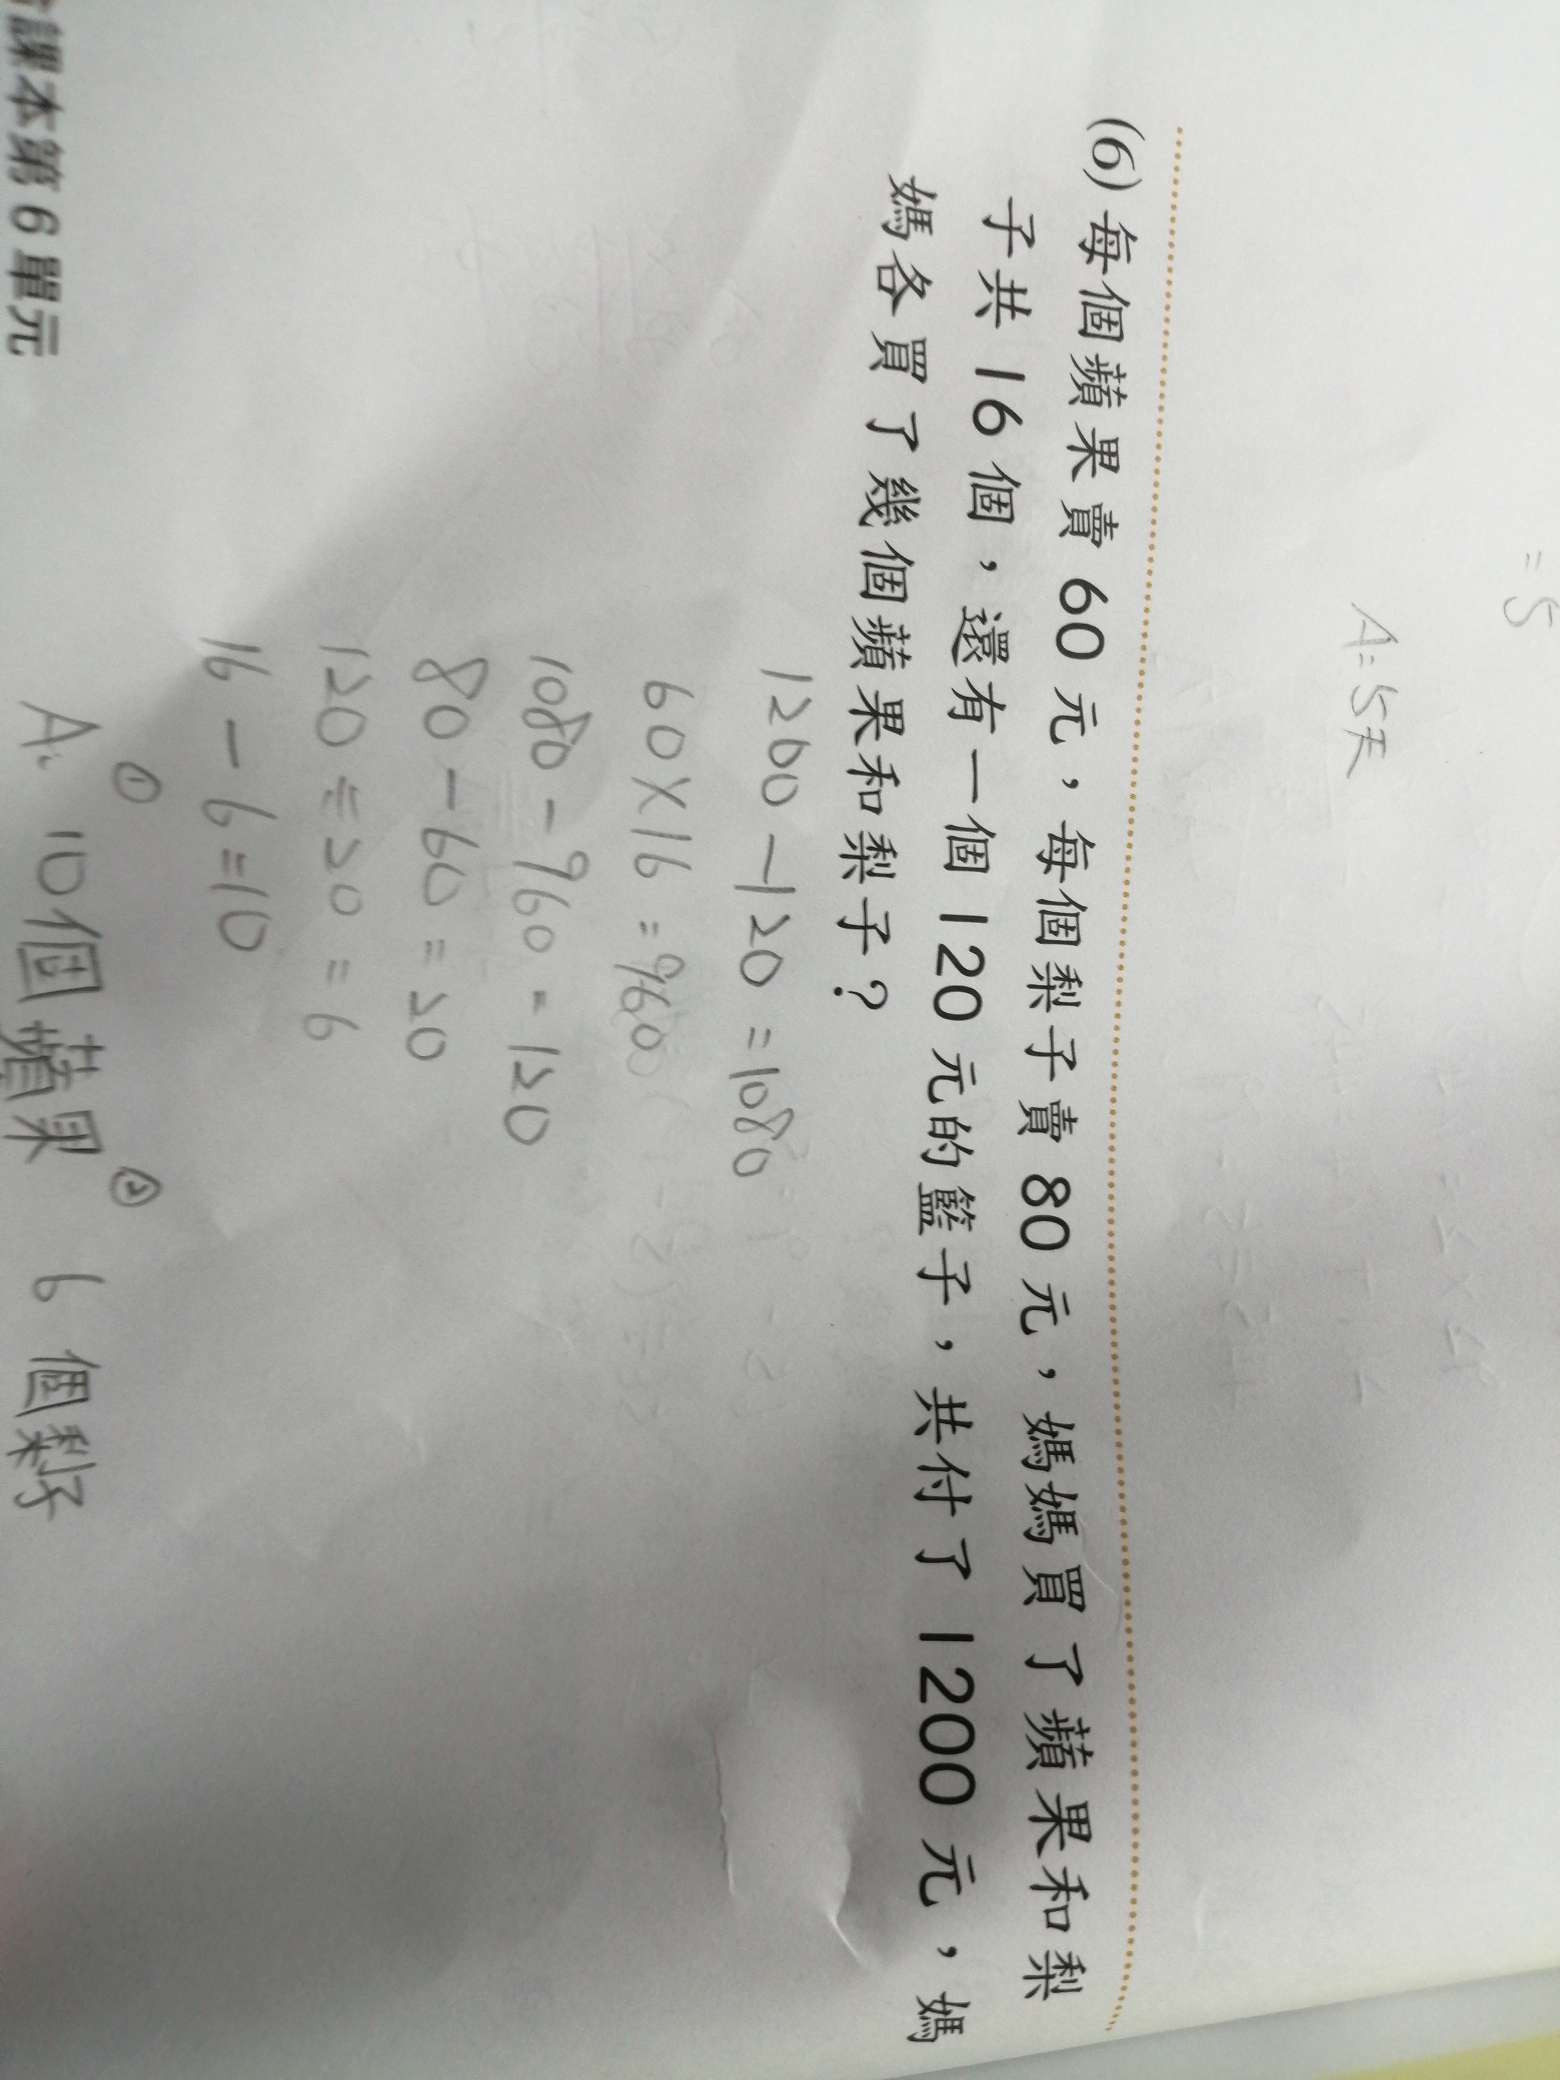 =5
A:5天
(6) 每個蘋果賣 60 元，每個梨子賣 80 元，媽媽買了蘋果和梨
子共 16 個，還有一個 120 元的籃子，共付了 1200 元，媽
媽各買了幾個蘋果和梨子？
1200-120=1080
60×16=960
1080-960=120
80-60=20
120÷20=6
16-6=10
① ②
A: 10個蘋果 6個梨子
課本第 6 單元